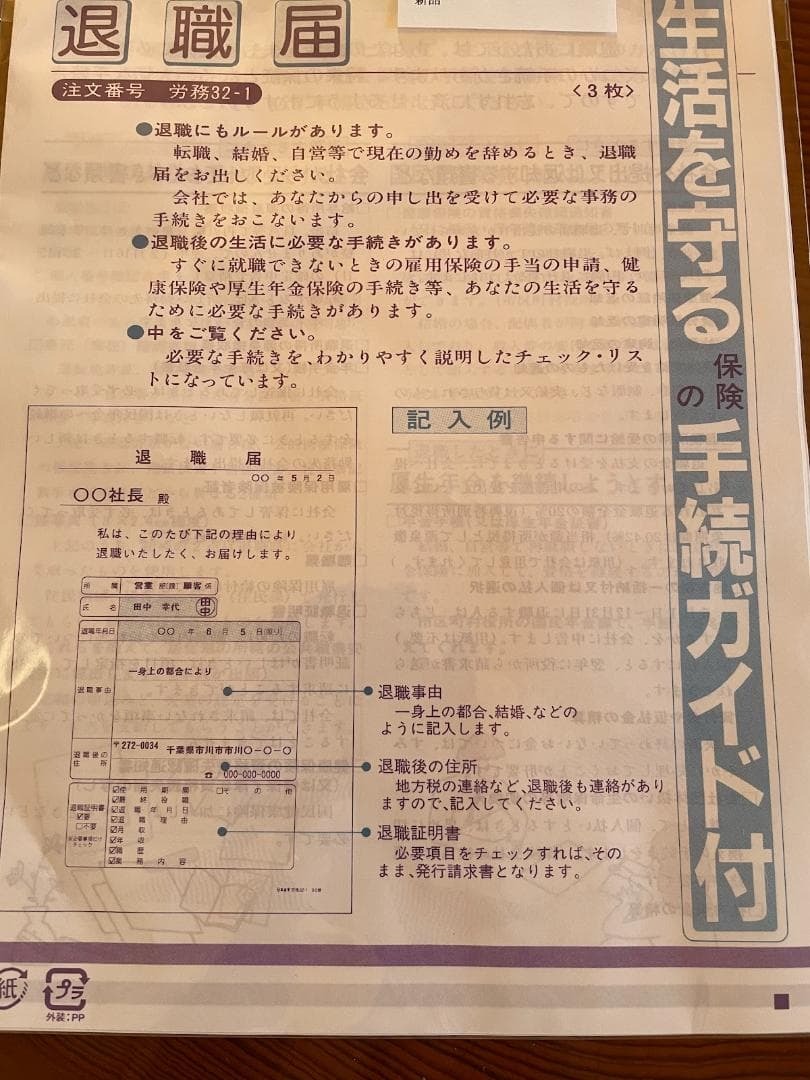 新品
退職届
注文番号 労務32-1
〈3枚〉
生活を守る保険の手続ガイド付
●退職にもルールがあります。
転職、結婚、自営等で現在の勤めを辞めるとき、退職
届をお出しください。
会社では、あなたからの申し出を受けて必要な事務の
手続きをおこないます。
●退職後の生活に必要な手続きがあります。
すぐに就職できないときの雇用保険の手当の申請、健
康保険や厚生年金保険の手続き等、あなたの生活を守る
ために必要な手続きがあります。
●中をご覧ください。
必要な手続きを、わかりやすく説明したチェック・リス
トになっています。
記入例
退職届
〇〇年5月2日
〇〇社長 殿
私は、このたび下記の理由により
退職いたしたく、お届けします。
所属 営業 部(課) 顧客 係
氏名 田中 幸代 田中
退職年月日 〇〇年6月5日(限り)
退職事由
一身上の都合により
退職後の
住所
〒272-0034 千葉県市川市市川〇-〇-〇
☎ 000-000-0000
退職証明書
☑要
□不要
☑使用期間 □その他
☑最終役職
☑退職年月日
☑退職理由
☑月収
☑年収
☑職歴
☑業務内容
退職事由
一身上の都合、結婚、などの
ように記入します。
退職後の住所
地方税の連絡など、退職後も連絡があり
ますので、記入してください。
退職証明書
必要項目をチェックすれば、その
まま、発行請求書となります。
紙
プラ
外装:PP